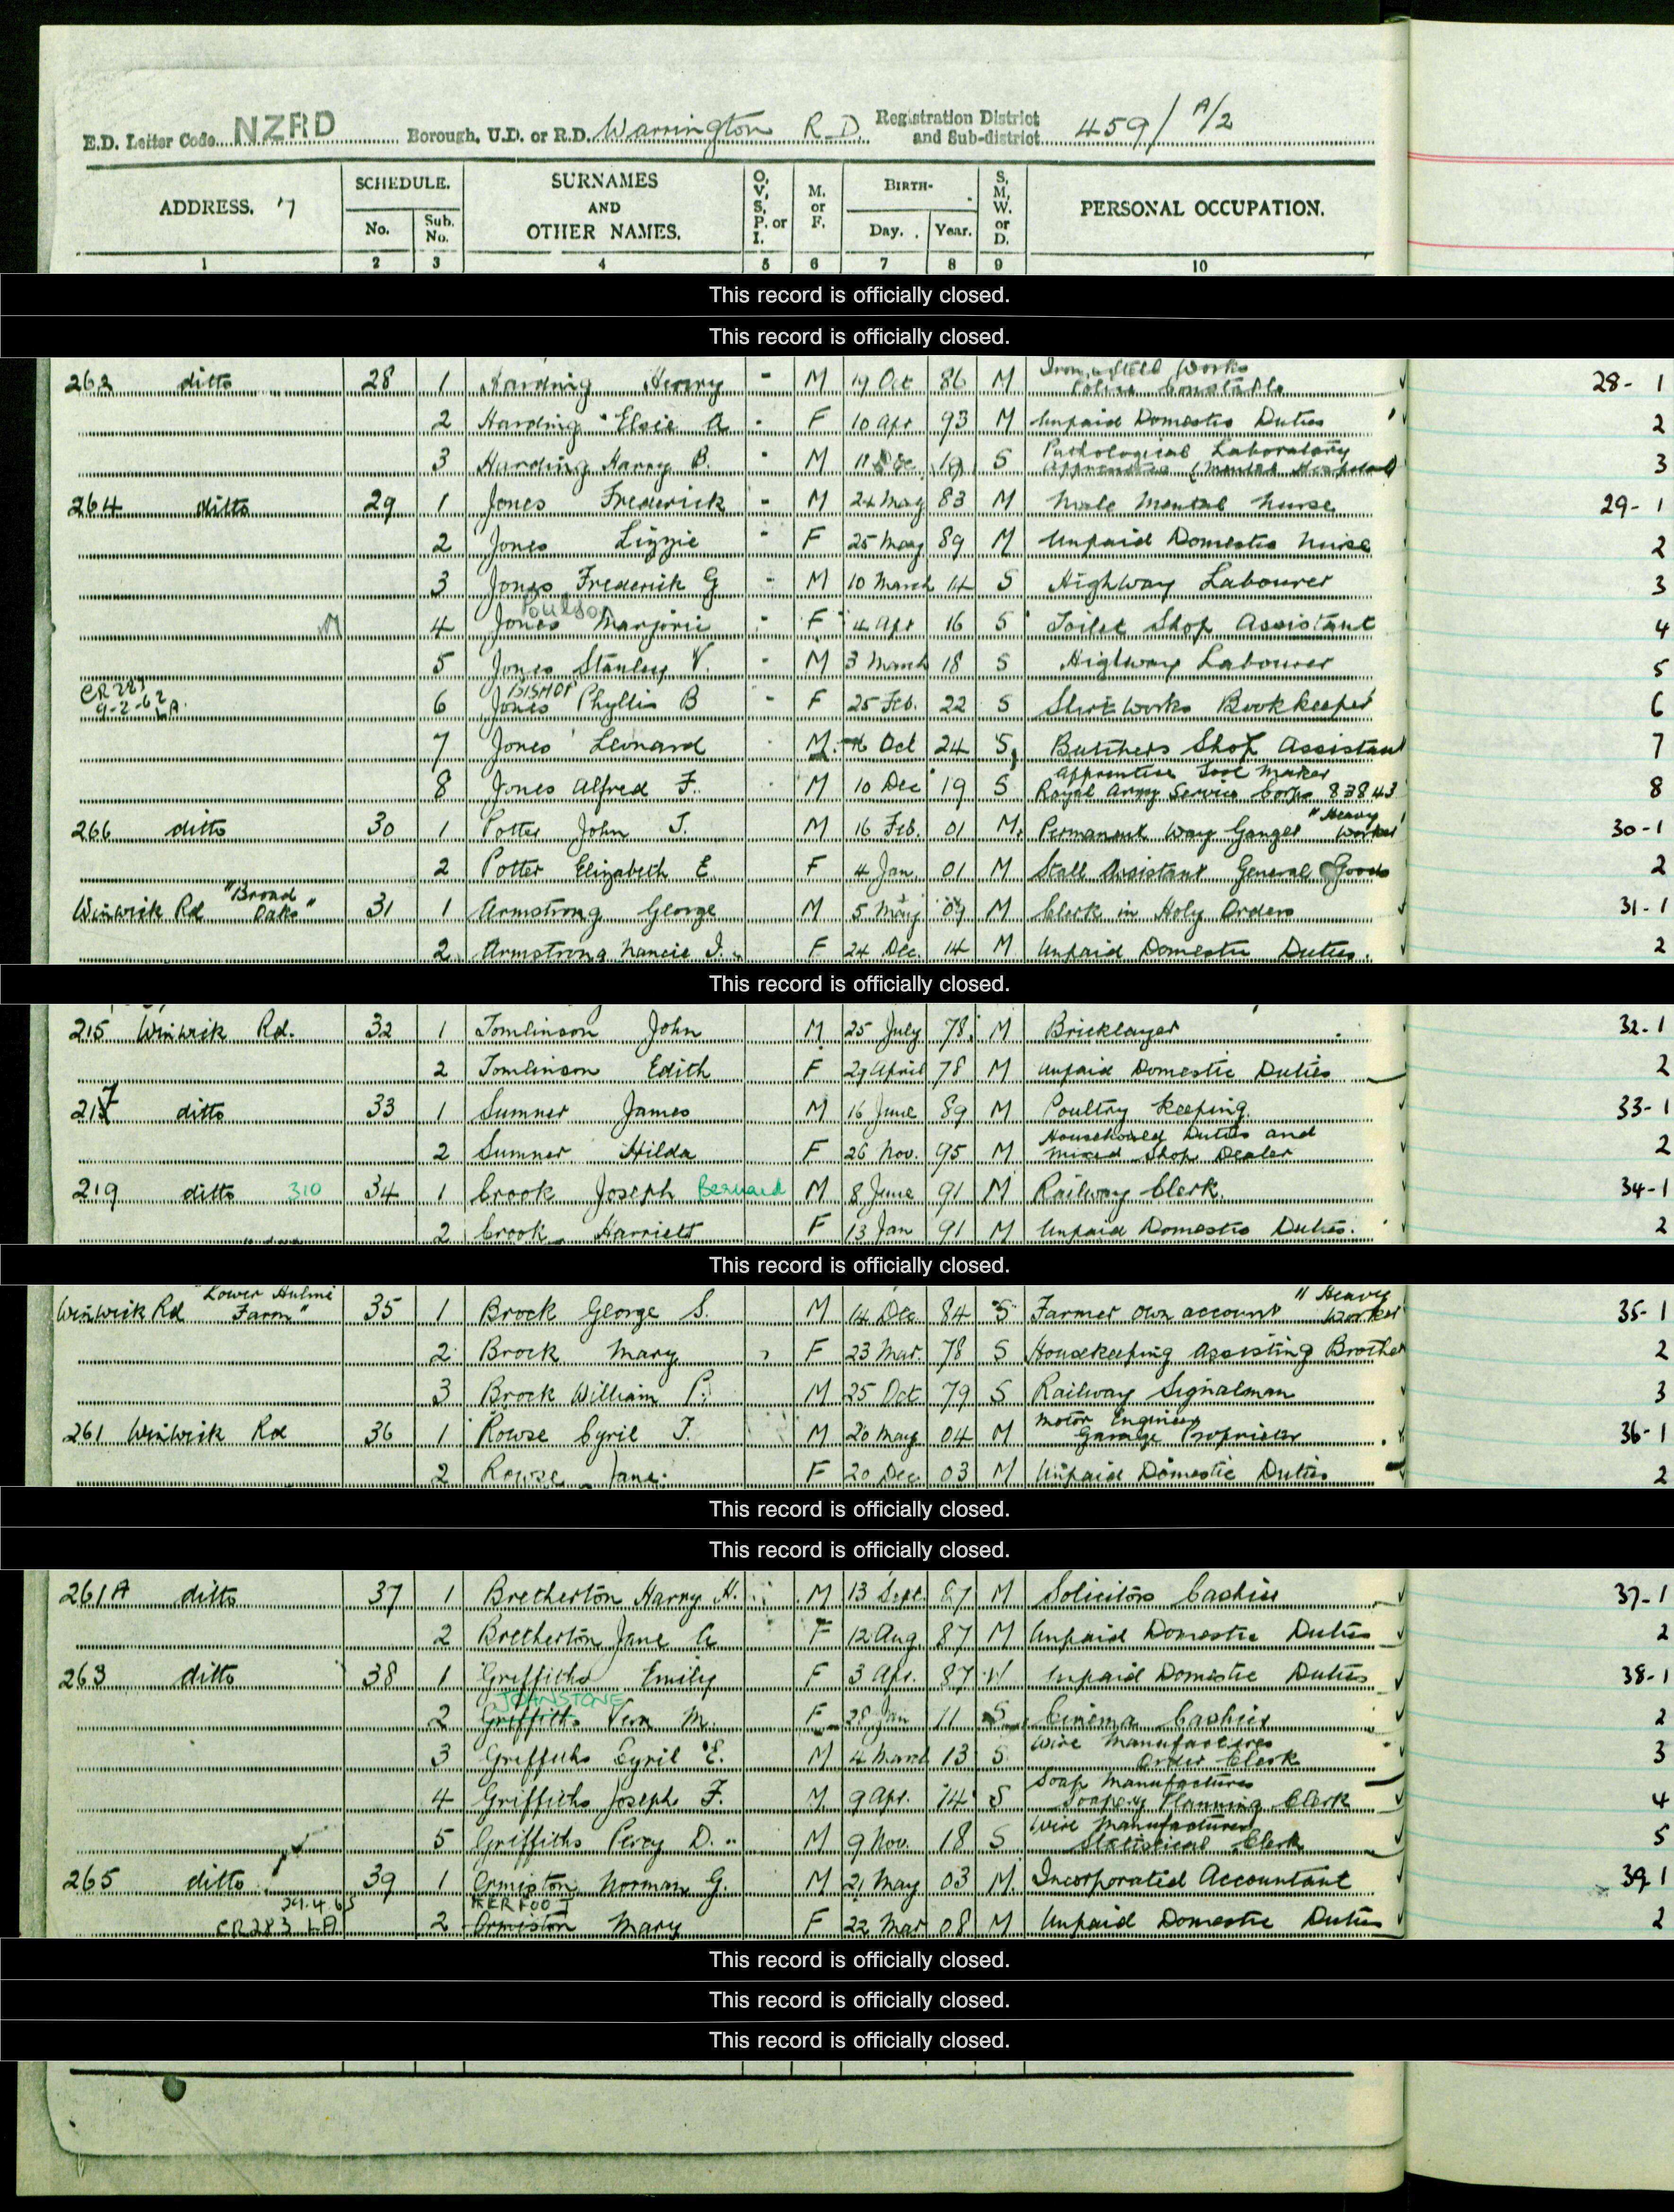 E.D. Letter Code NZRD Borough, U.D. or R.D. Warrington R.D. Registration District and Sub-district 459/A/2
ADDRESS. 7 SCHEDULE. No. Sub. No. SURNAMES AND OTHER NAMES. O, V, S, P. or I. M. or F. BIRTH- Day. Year. S, M, W. or D. PERSONAL OCCUPATION.
1 2 3 4 5 6 7 8 9 10
This record is officially closed.
This record is officially closed.
Iron & Steel Works
262 ditto 28 1 Harding Henry - M 19 Oct 86 M Police Constable 28- 1
2 Harding Elsie A - F 10 Apr 93 M Unpaid Domestic Duties 2
Pathological Laboratory
3 Harding Harry B. - M 11 Dec 19 S Apprentice (Mental Hospital) 3
264 ditto 29 1 Jones Frederick - M 24 May 83 M Male Mental Nurse 29- 1
2 Jones Lizzie - F 25 May 89 M Unpaid Domestic Nurse 2
3 Jones Frederick G - M 10 March 14 S Highway Labourer 3
Poulson
M 4 Jones Marjorie - F 4 Apr 16 S Toilet Shop Assistant 4
5 Jones Stanley V. - M 3 March 18 S Highway Labourer 5
CR 283 BISHOP
9-2-62 LA. 6 Jones Phyllis B - F 25 Feb. 22 S Shirt Works Bookkeeper 6
7 Jones Leonard M 16 Oct 24 S Butchers Shop Assistant 7
Apprentice Tool Maker
8 Jones Alfred F. M 10 Dec 19 S Royal Army Service Corps 83843 8
"Heavy
266 ditto 30 1 Potter John J. M 16 Feb. 01 M. Permanent Way Ganger Worker 30-1
2 Potter Elizabeth E. F 4 Jan. 01 M Stall Assistant General Goods 2
"Broad
Winwick Rd Oaks" 31 1 Armstrong George M 5 May 09 M Clerk in Holy Orders 31-1
2 Armstrong Nancie J. F 24 Dec. 14 M Unpaid Domestic Duties. 2
This record is officially closed.
215 Winwick Rd. 32 1 Tomlinson John M 25 July 78 M Bricklayer 32-1
2 Tomlinson Edith F 29 April 78 M Unpaid Domestic Duties 2
217 ditto 33 1 Sumner James M 16 June 89 M Poultry Keeping 33-1
Household Duties and
2 Sumner Hilda F 26 Nov. 95 M Mixed Shop Dealer 2
219 ditto 310 34 1 Crook Joseph Bernard M 8 June 91 M Railway Clerk. 34-1
2 Crook Harriett F 13 Jan 91 M Unpaid Domestic Duties. 2
This record is officially closed.
"Lower Hulme "Heavy
Winwick Rd Farm" 35 1 Brock George S. M 14 Dec. 84 S Farmer own account Worker 35-1
2 Brock Mary F 23 Mar. 78 S Housekeeping Assisting Brother 2
3 Brock William P. M 25 Oct 79 S Railway Signalman 3
Motor Engineer
261 Winwick Rd 36 1 Rowse Cyril J. M 20 May 04 M Garage Proprietor 36-1
2 Rowse Jane. F 20 Dec 03 M Unpaid Domestic Duties 2
This record is officially closed.
This record is officially closed.
261A ditto 37 1 Bretherton Harry H. M 13 Sept. 87 M Solicitors Cashier 37-1
2 Bretherton Jane A F 12 Aug. 87 M Unpaid Domestic Duties 2
263 ditto 38 1 Griffiths Emily F 3 Apr. 87 W Unpaid Domestic Duties 38-1
JOHNSTONE
2 Griffiths Vera M. F 28 Jan 11 S Cinema Cashier 2
Wire Manufacturers
3 Griffiths Cyril E. M 4 March 13 S Order Clerk 3
Soap Manufacturers
4 Griffiths Joseph F. M 9 Apr. 14 S Soapery Planning Clerk 4
Wire Manufacturers
5 Griffiths Percy D. M 9 Nov. 18 S Statistical Clerk 5
265 ditto 39 1 Ormiston Norman G. M 21 May 03 M. Incorporated Accountant 39-1
29.4.65 KERFOOT
CR283 LA 2 Ormiston Mary F 22 Mar 08 M Unpaid Domestic Duties 2
This record is officially closed.
This record is officially closed.
This record is officially closed.